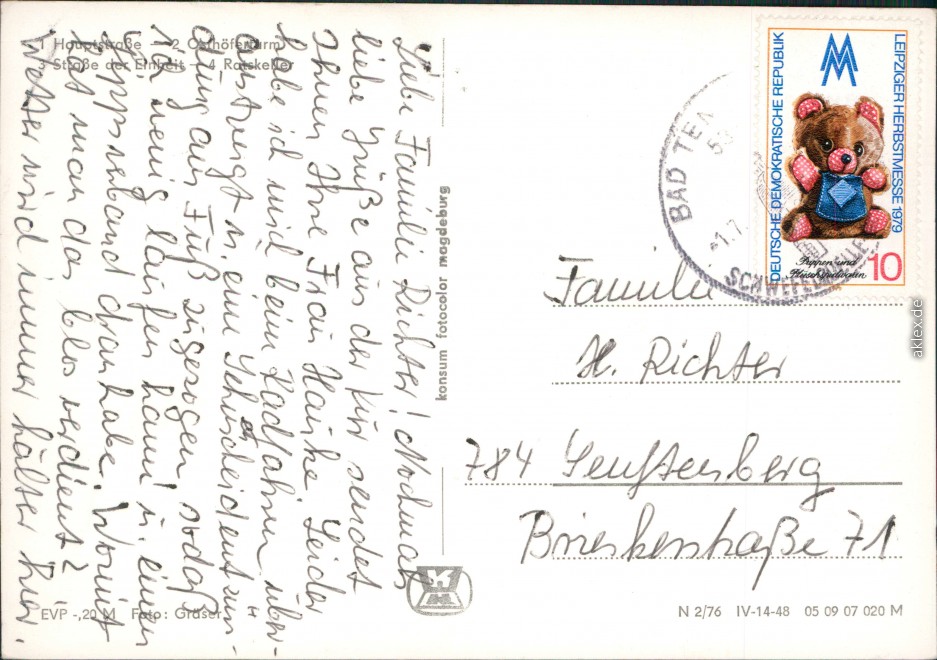 1 Hauptstraße — 2 Osthöferturm
3 Straße der Einheit — 4 Ratskeller
Liebe Familie Richter! Nochmals
liebe Grüße aus der Kur sendet
Ihnen Ihre Frau Hauske. Leider
habe ich mich beim Radfahren über-
anstrengt u. eine Sehnscheidentzün-
dung am Fuß zugezogen, sodaß
ich wenig laufen kann u. einen
Gippsverband dran habe. Womit
hat man das blos verdient?
Wetter wird immer kälter hier.
EVP -,20 M Foto: Gräser
konsum fotocolor magdeburg
DEUTSCHE DEMOKRATISCHE REPUBLIK
LEIPZIGER HERBSTMESSE 1979
Puppen und
Plüschspielwaren
10
BAD TEN
SCHWEFEL
Familie
H. Richter
784 Senftenberg
Brieskerstraße 71
N 2/76 IV-14-48 05 09 07 020 M
aklex.de